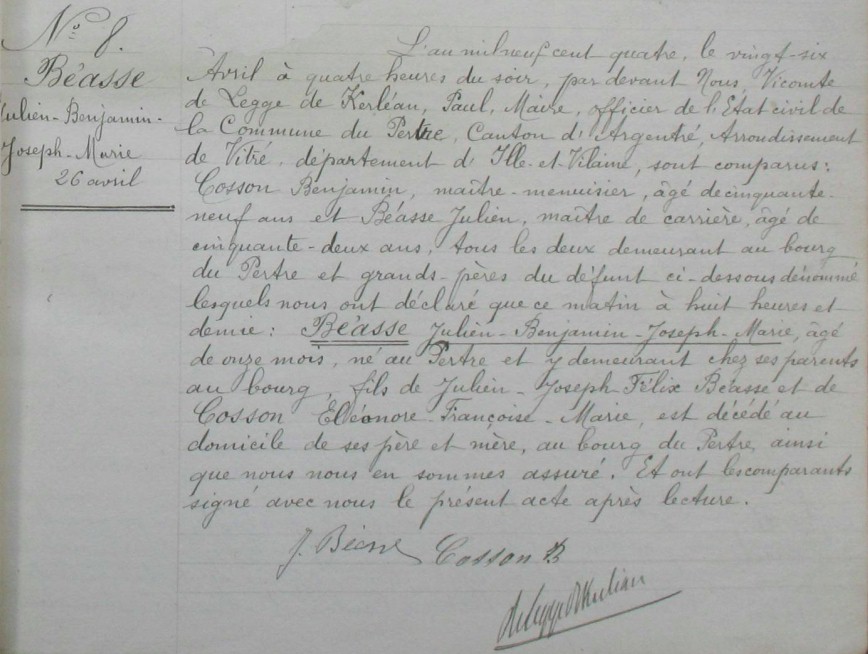 N° 8.
Béasse
Julien-Benjamin-
Joseph-Marie
26 avril
L'an mil neuf cent quatre, le vingt-six
Avril à quatre heures du soir, par devant Nous, Vicomte
de Legge de Kerléan, Paul, Maire, officier de l'Etat civil de
la Commune du Pertre, Canton d'Argentré, Arrondissement
de Vitré, département d'Ille-et-Vilaine, sont comparus:
Cosson Benjamin, maître-menuisier, âgé de cinquante-
neuf ans et Béasse Julien, maître de carrière, âgé de
cinquante-deux ans, tous les deux demeurant au bourg
du Pertre et grands-pères du défunt ci-dessous dénommé
lesquels nous ont déclaré que ce matin à huit heures et
demie: Béasse Julien-Benjamin-Joseph-Marie, âgé
de onze mois, né au Pertre et y demeurant chez ses parents
au bourg, fils de Julien-Joseph-Félix Béasse et de
Cosson Eléonore-Françoise-Marie, est décédé au
domicile de ses père et mère, au bourg du Pertre, ainsi
que nous nous en sommes assuré. Et ont les comparants
signé avec nous le présent acte après lecture.
J. Béasse Cosson B
de Legge de Kerléan